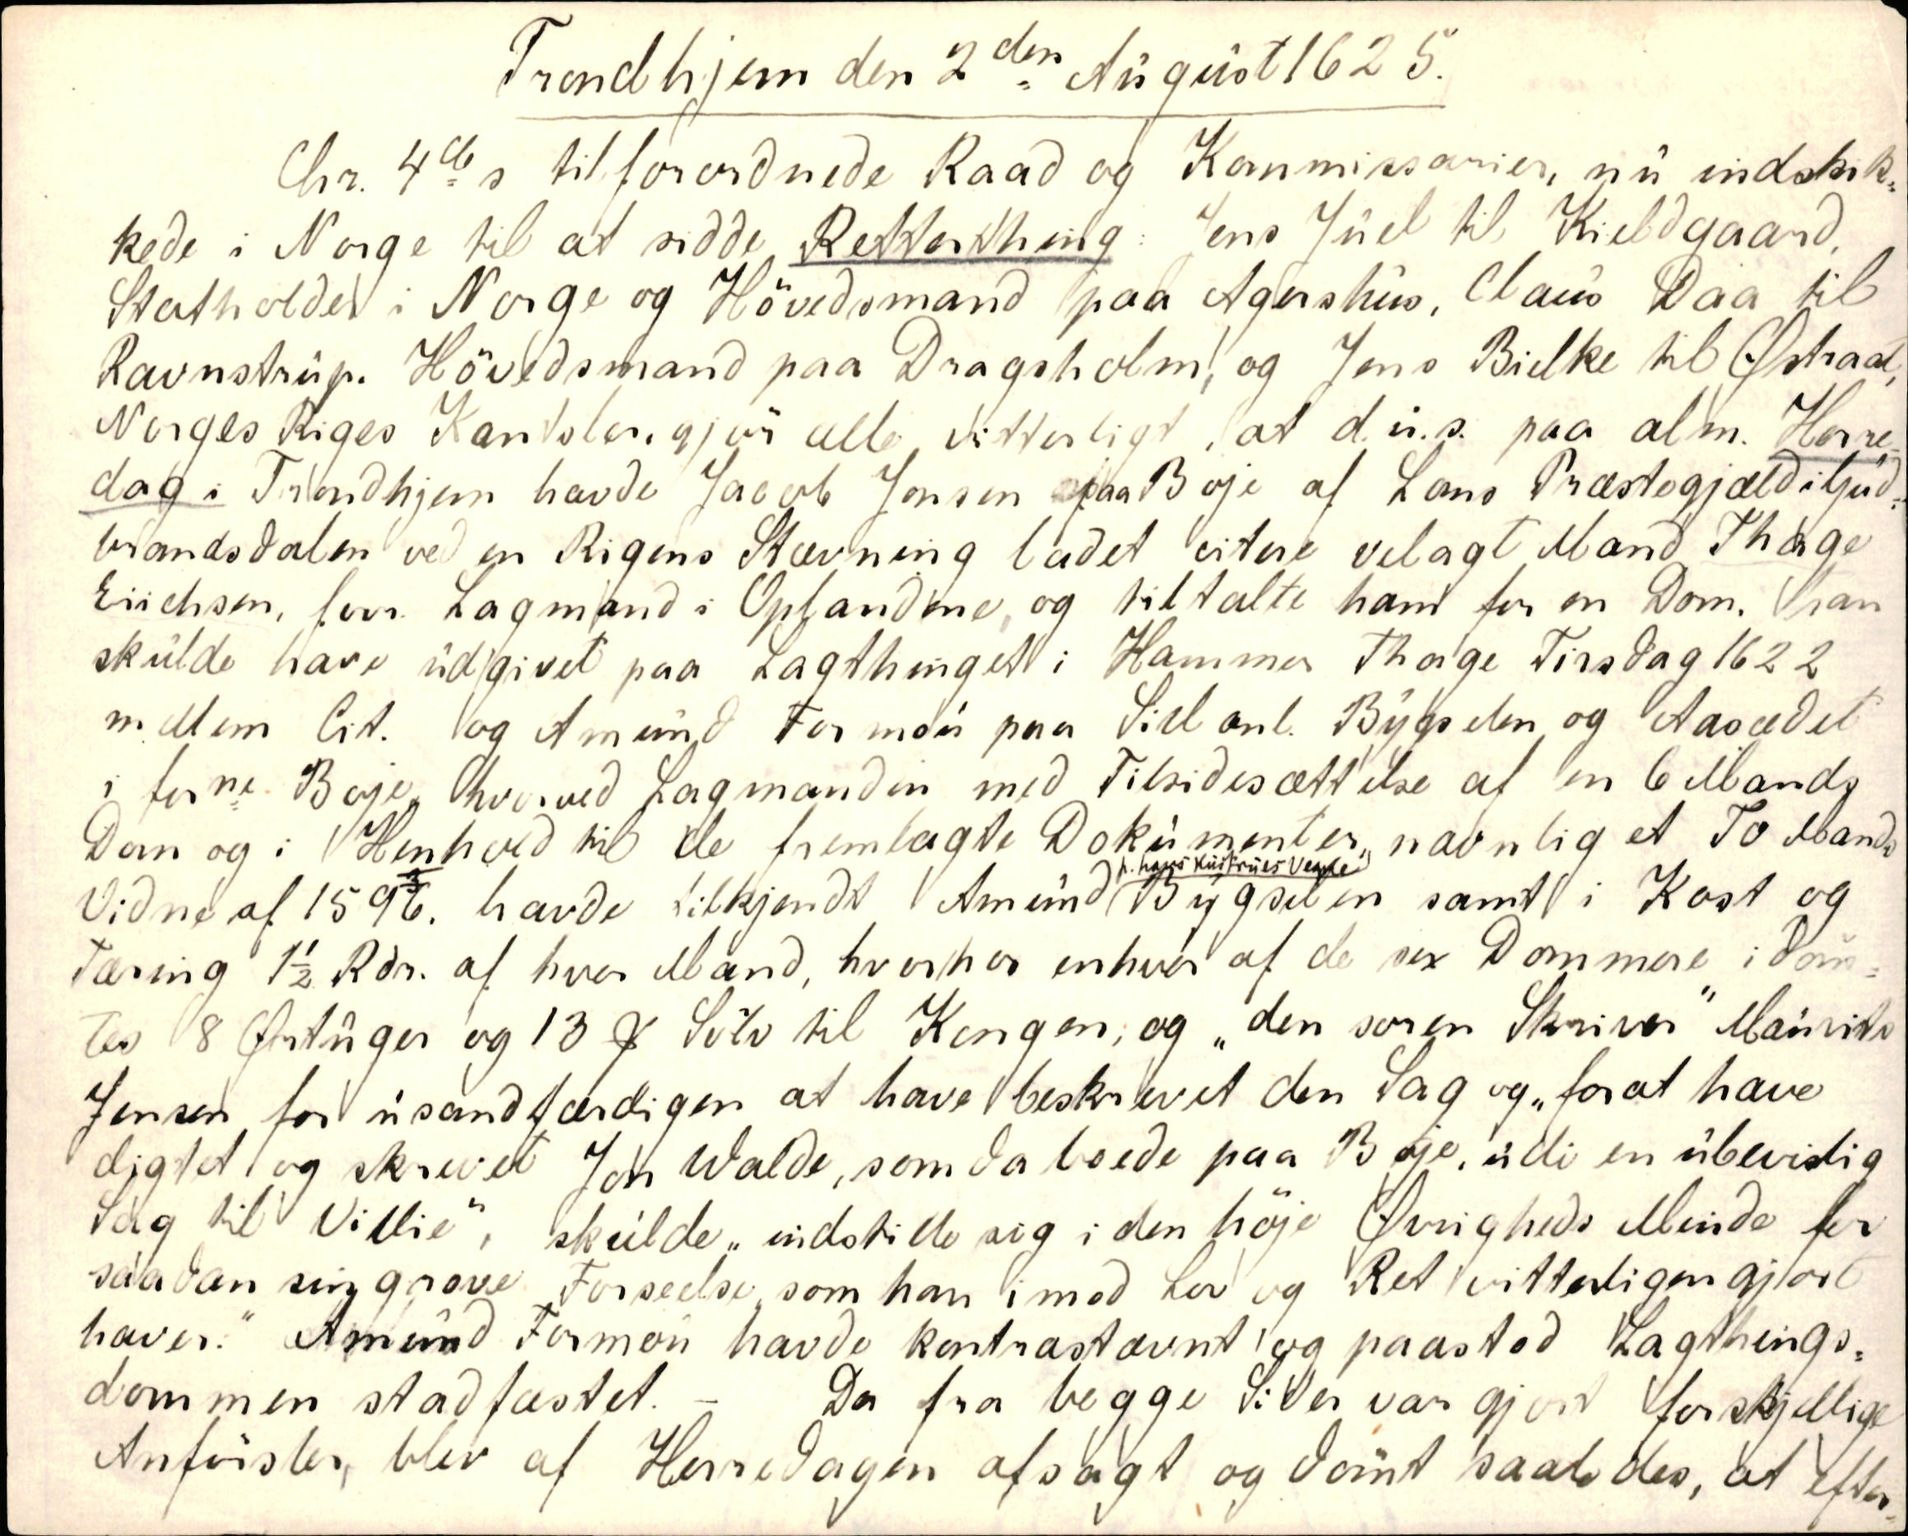 Trondhjem den 2den August 1625.
Chr. 4des tilforordnede Raad og Kommissarier, nu indskik-
kede i Norge til at sidde Retterthing: Jens Juel til Kieldgaard,
Statholder i Norge og Hövedsmand paa Agershus, Claus Daa til
Ravnstrup. Hövedsmand paa Dragsholm, og Jens Bielke til Østraat,
Norges Riges Kantsler, gjör alle vitterligt, at d.u.s. paa alm. Herre-
dag i Trondhjem havde Jacob Jonsen paa Bøje af Loms Præstegjæld i Gud-
brandsdalen ved en Rigens Stævning ladet citere velagt Mand Thage
Eriichsen, forr. Lagmand i Oplandene, og tiltalte ham for en Dom, han
skulde have udgivet paa Lagthinget i Hammer Thage Tirsdag 1622
mellem Cit. og Amund Formou paa Sill anl. Bygselen og Aasædet
i forne Bøje, hvorved Lagmanden med Tilsidesættelse af en 6 Mands
Dom og i Henhold til de fremlagte Dokumenter, navnlig et To Mands
p. hans Hustrues Vegne
Vidne af 1596. havde tilkjendt Amund Bygselen samt i Kost og
Tæring 1½ Rdr. af hver Mand, hvorhos enhver af de sex Dommere idöm-
tes 8 Ørtuger og 13 Sölv til Kongen, og "den soren Skriver" Maurits
Jensen for usandfærdigen at have beskrevet den Sag og "for at have
digtet og skrevet Jon Walde, som da boede paa Bøje, udi en ubevislig
Sag til Villie", skulde "indstille sig i den höje Øvrigheds Minde for
saadan sin grove Forseelse, som han imod Lov og Ret vitterligen gjort
haver." Amund Formou havde kontrastævnt og paastod Lagthings-
dommen stadfæstet. - Da fra begge Sider var gjort forskjellige
Anförsler, blev af Herredagen afsagt og dömt saaledes, at efter-